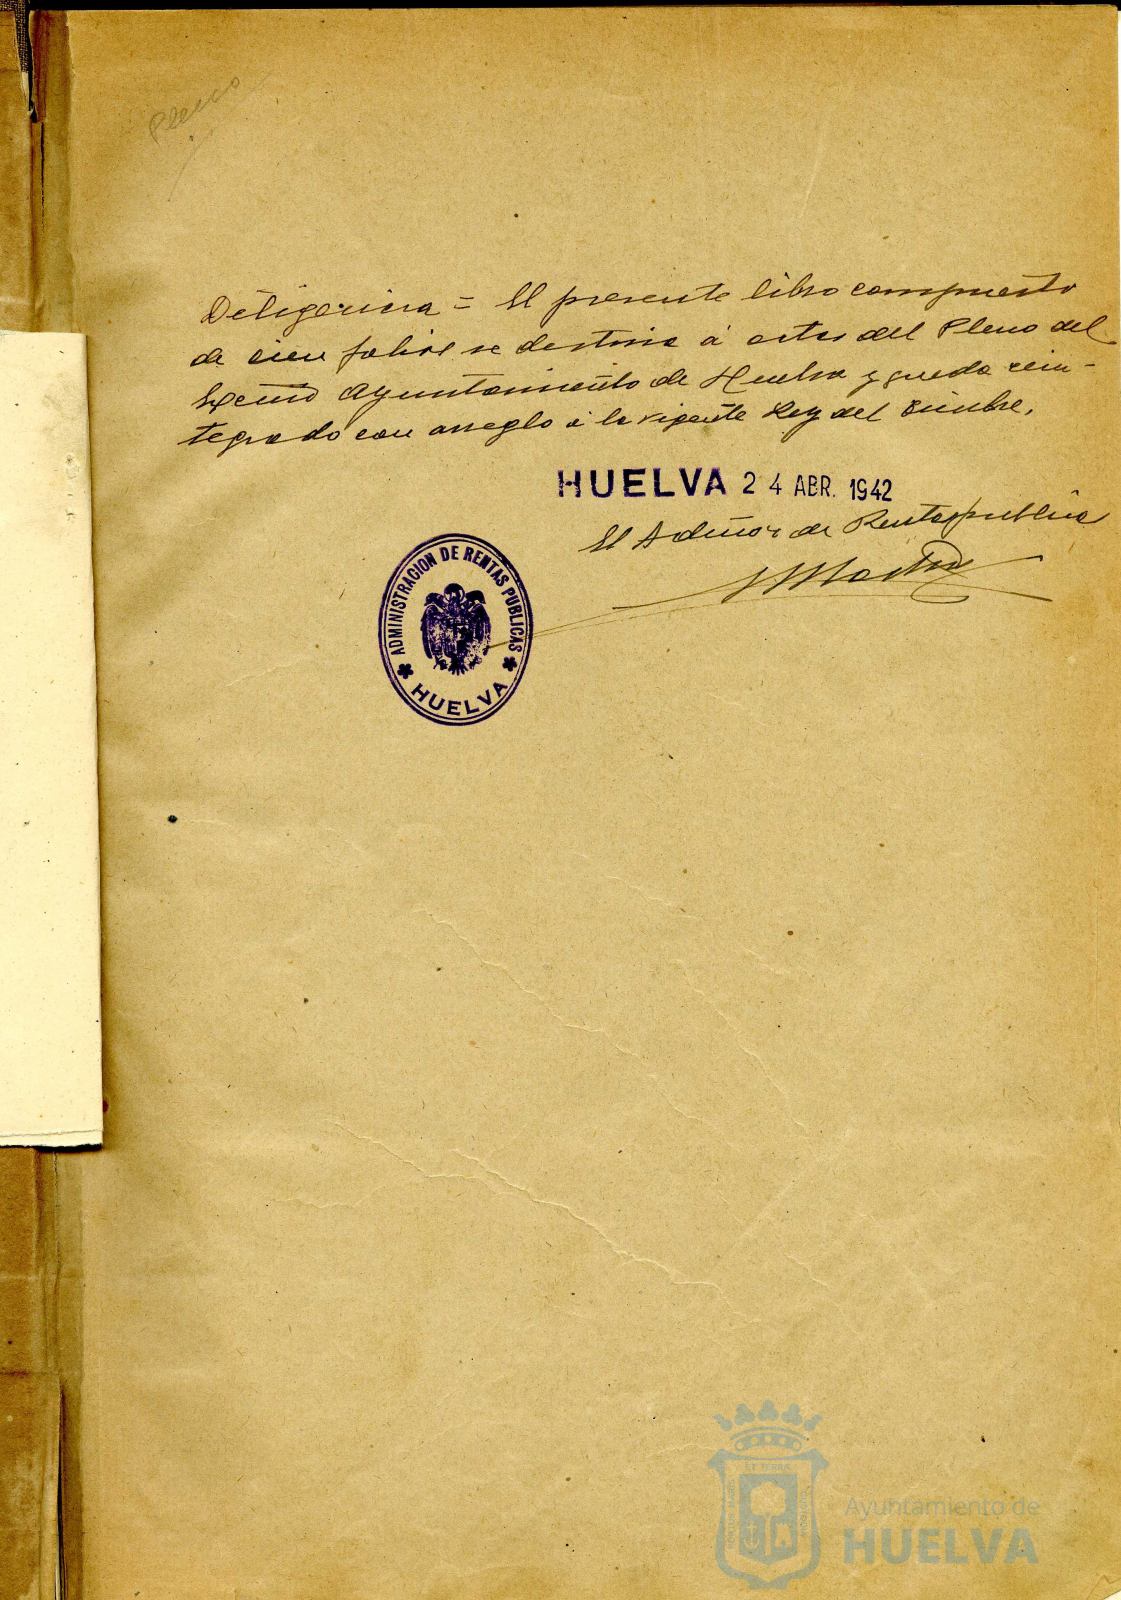 Pleno
Diligencia = El presente libro compuesto
de cien folios se destina á actas del Pleno del
Excmo Ayuntamiento de Huelva y queda rein-
tegrado con arreglo a la vigente Ley del Timbre.
HUELVA 24 ABR. 1942
El Admor de Rentas publicas
ADMINISTRACION DE RENTAS PUBLICAS
HUELVA
Ayuntamiento de
HUELVA